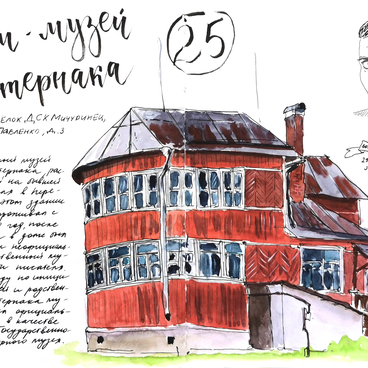 м-музей
тернака
25
елок ДСК Мичуринец,
Павленко, д. 3
музей
тернака, рас
на бывшей
ая в Пере
этом здании
с
год, после
в доме был
неофициаль
ственный му
писателя.
ду по иници
ей и родствен
тернака му
официаль
в качестве
Государственно
рного музея.